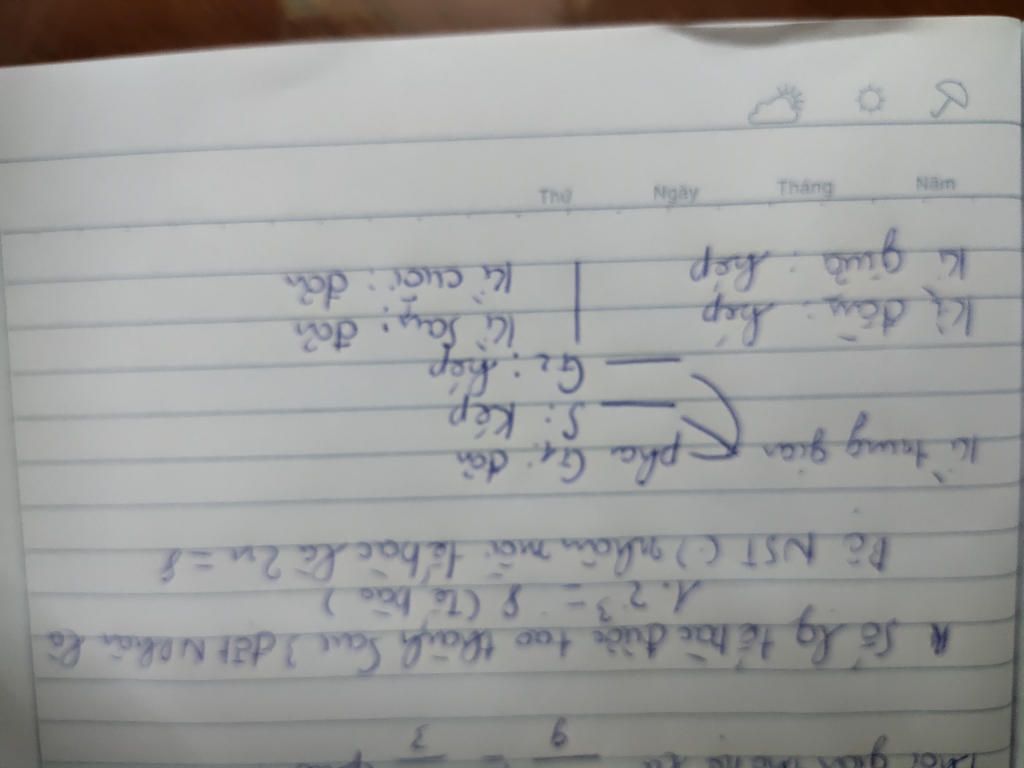 Số lg tế bào được tạo thành sau 3 đợt NPhân là
1. 2³ = 8 (Tế bào)
Bộ NST () nhân mỗi tế bào là 2n = 8
Kì trung gian pha G1: đơn
S: Kép
G2: kép
Kì đầu: kép Kì sau: đơn
Kì giữa: kép Kì cuối: đơn
Thứ Ngày Tháng Năm